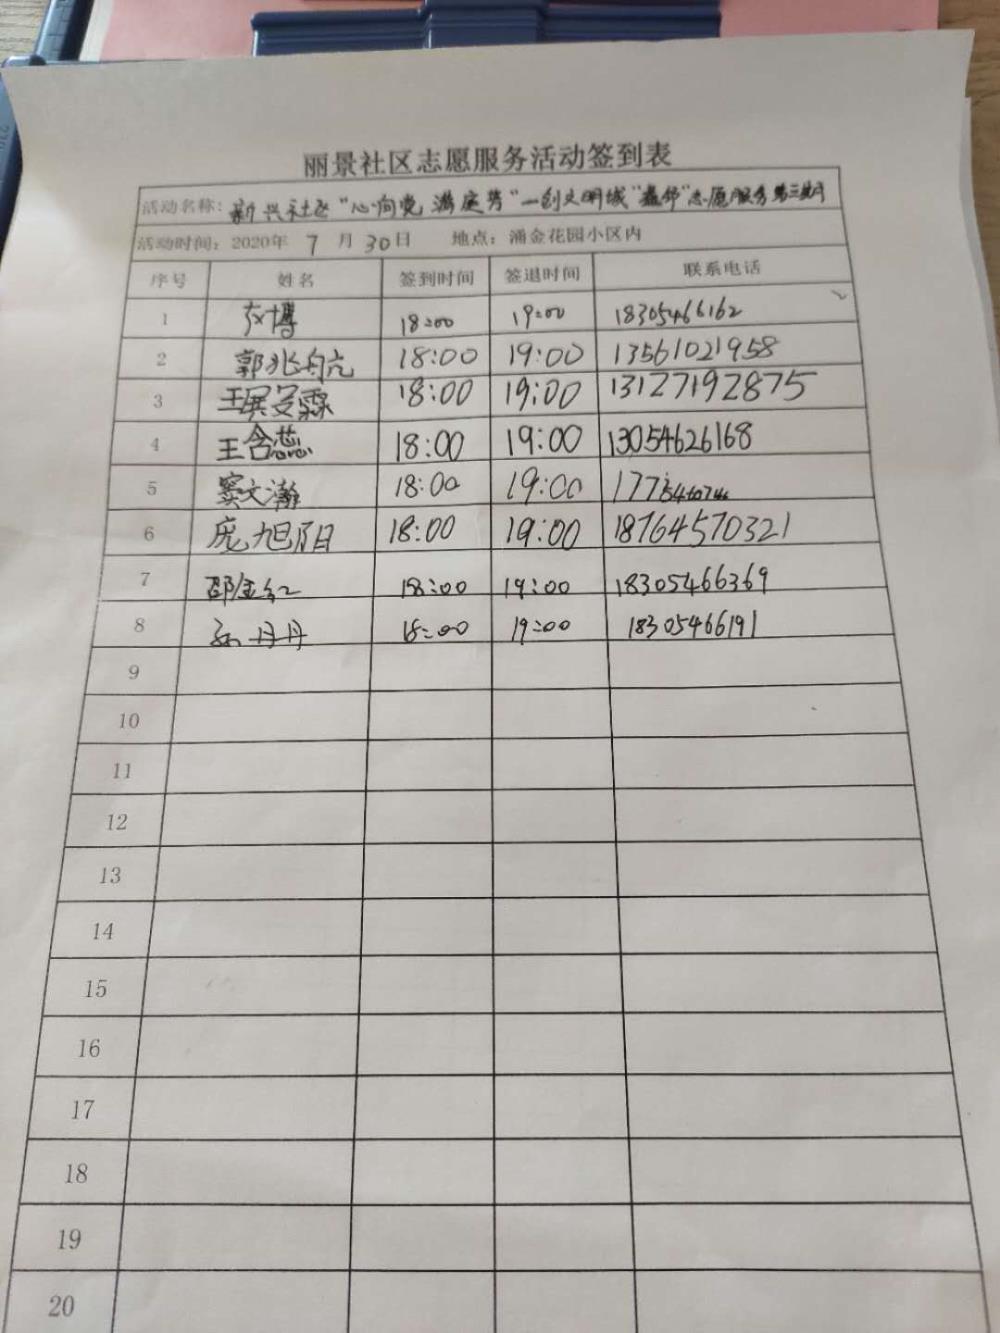 丽景社区志愿服务活动签到表
活动名称：新兴社区“心向党 满庭芳”—创文明城“鑫邻”志愿服务第三期
活动时间：2020年 7 月 30日 地点：涌金花园小区内
序号 姓名 签到时间 签退时间 联系电话
1 博 18:00 19:00 18305466162
2 郭兆航 18:00 19:00 13561021958
3 王曼霖 18:00 19:00 13127192875
4 王含蕊 18:00 19:00 13054626168
5 窦文瀚 18:00 19:00
6 庞旭阳 18:00 19:00 18764570321
7 邵金红 18:00 19:00 18305466369
8 孙丹丹 18:00 19:00 18305466191
9
10
11
12
13
14
15
16
17
18
19
20